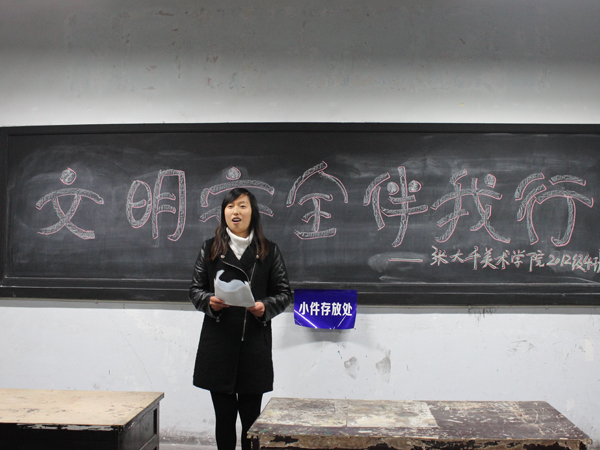 文明安全伴我行
——张大千美术学院2012级
小件存放处